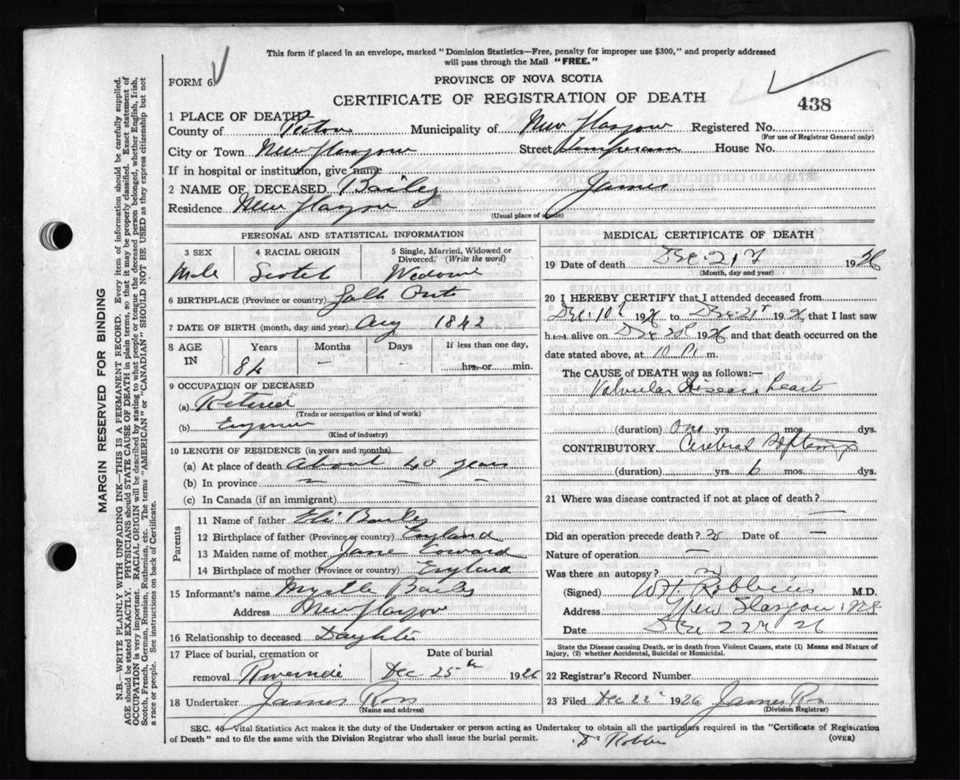 This form if placed in an envelope, marked "Dominion Statistics—Free, penalty for improper use $300," and properly addressed
will pass through the Mail "FREE."
FORM 6
PROVINCE OF NOVA SCOTIA
CERTIFICATE OF REGISTRATION OF DEATH
438
1 PLACE OF DEATH
County of Pictou Municipality of New Glasgow Registered No.
(For use of Registrar General only)
City or Town New Glasgow Street House No.
If in hospital or institution, give name
2 NAME OF DECEASED Bailey James
Residence New Glasgow
(Usual place of abode)
PERSONAL AND STATISTICAL INFORMATION
3 SEX 4 RACIAL ORIGIN 5 Single, Married, Widowed or Divorced. (Write the word)
Male Scotch
6 BIRTHPLACE (Province or country) Galt Ont
7 DATE OF BIRTH (month, day and year) Aug 1842
8 AGE IN Years Months Days If less than one day,
84 — hrs. or min.
9 OCCUPATION OF DECEASED
(a) Retired
(Trade or occupation or kind of work)
(b)
(Kind of industry)
10 LENGTH OF RESIDENCE (in years and months)
(a) At place of death about 40 years
(b) In province — —
(c) In Canada (if an immigrant)
Parents
11 Name of father Eli Bailey
12 Birthplace of father (Province or country) England
13 Maiden name of mother Jane
14 Birthplace of mother (Province or country) England
15 Informant's name Myrtle Bailey
Address New Glasgow
16 Relationship to deceased Daughter
17 Place of burial, cremation or removal Date of burial
Riverside Dec 25th 1926
18 Undertaker James Ross
(Name and address)
MEDICAL CERTIFICATE OF DEATH
19 Date of death Dec 21 1926
(Month, day and year)
20 I HEREBY CERTIFY that I attended deceased from
Dec 10 1926 to Dec 21st 1926 that I last saw
him alive on Dec 20 1926 and that death occurred on the
date stated above, at 10 P. m.
The CAUSE of DEATH was as follows:—
Valvular Disease heart
(duration) One yrs. mos. dys.
CONTRIBUTORY Cerebral
(duration) yrs. 6 mos. dys.
21 Where was disease contracted if not at place of death? —
Did an operation precede death? no Date of —
Nature of operation —
Was there an autopsy? no
(Signed) M.D.
Address New Glasgow N.S.
Date Dec 22nd 26
State the Disease causing Death, or in death from Violent Causes, state (1) Means and Nature of
Injury, (2) whether Accidental, Suicidal or Homicidal.
22 Registrar's Record Number
23 Filed Dec 22 1926 James Ross
(Division Registrar)
SEC. 46—Vital Statistics Act makes it the duty of the Undertaker or person acting as Undertaker to obtain all the particulars required in the "Certificate of Registration
of Death" and to file the same with the Division Registrar who shall issue the burial permit.
(OVER)
MARGIN RESERVED FOR BINDING
N.B.—WRITE PLAINLY WITH UNFADING INK—THIS IS A PERMANENT RECORD. Every item of information should be carefully supplied.
AGE should be stated EXACTLY. PHYSICIANS should STATE CAUSE OF DEATH in plain terms, so that it may be properly classified. Exact statement of
OCCUPATION is very important. RACIAL ORIGIN will be described by stating to what people or tongue the deceased person belonged, whether English, Irish,
Scotch, French, German, Russian, Ruthenian, etc. The terms "AMERICAN" or "CANADIAN" SHOULD NOT BE USED as they express citizenship but not
a race or people. See instructions on back of Certificate.